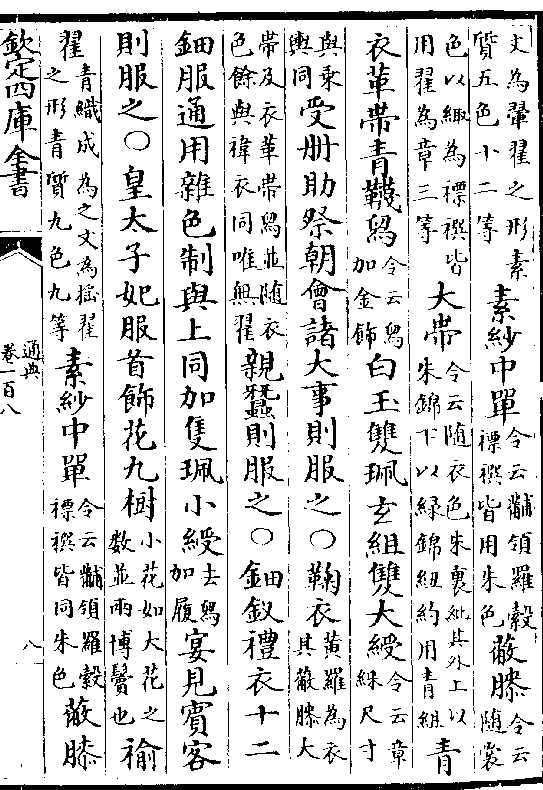 文為翬翟之形素質五色十二等素紗中單令云黼領羅縠褾襈皆用朱色蔽膝令云随裳
色以緅為褾襈皆用翟為章三等大帶令云随衣色朱裏紕其外上以朱錦下以緑錦紐約用青組青
衣革帶青韈舄令云舄加金飾白玉雙珮玄組雙大綬令云章綵尺寸
與乘輿同受册助祭朝會諸大事則服之○鞠衣黄羅為衣其蔽膝大
帶及衣革帶舄並随衣色餘與褘衣同唯無翟親蠶則服之○鈿釵禮衣十二
鈿服通用雜色制與上同加隻珮小綬去舄加履宴見賓客
則服之○皇太子妃服首飾花九樹小花如大花之數並兩博鬢也褕
翟青織成為之文為摇翟之形青質九色九等素紗中單令云黼領羅縠褾襈皆同朱色蔽膝
欽定四庫全書
通典
卷一百八
八